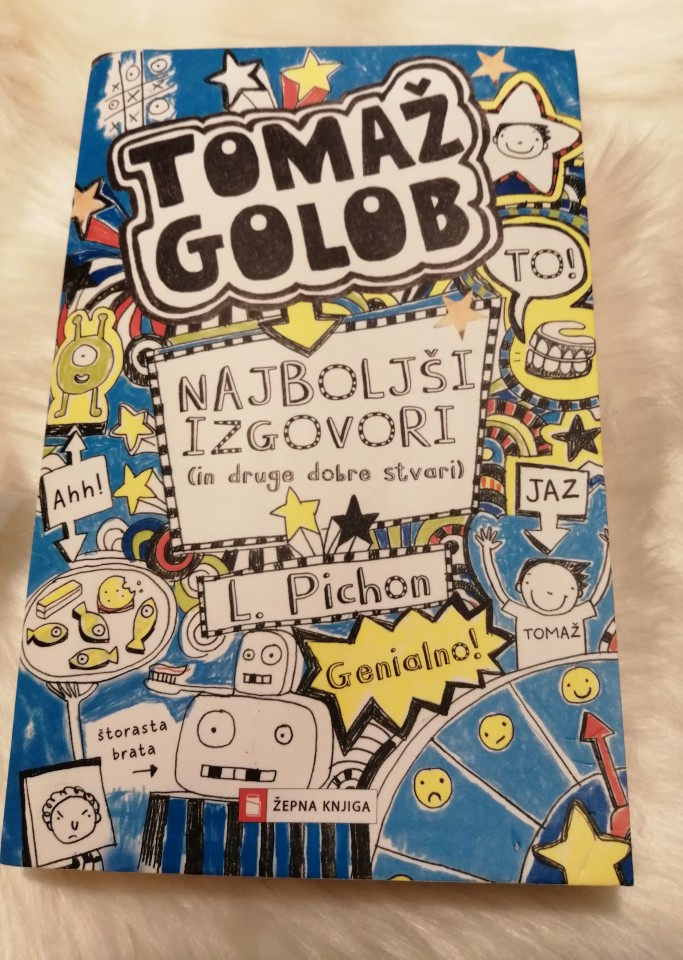 TOMAŽ
GOLOB
TO!
NAJBOLJŠI
IZGOVORI
(in druge dobre stvari)
Ahh!
JAZ
L. Pichon
TOMAŽ
Genialno!
štorasta
brata
ŽEPNA KNJIGA